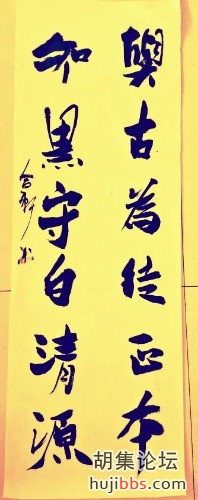 與古為徒正本
知黑守白清源
胡集论坛
hujibbs.com